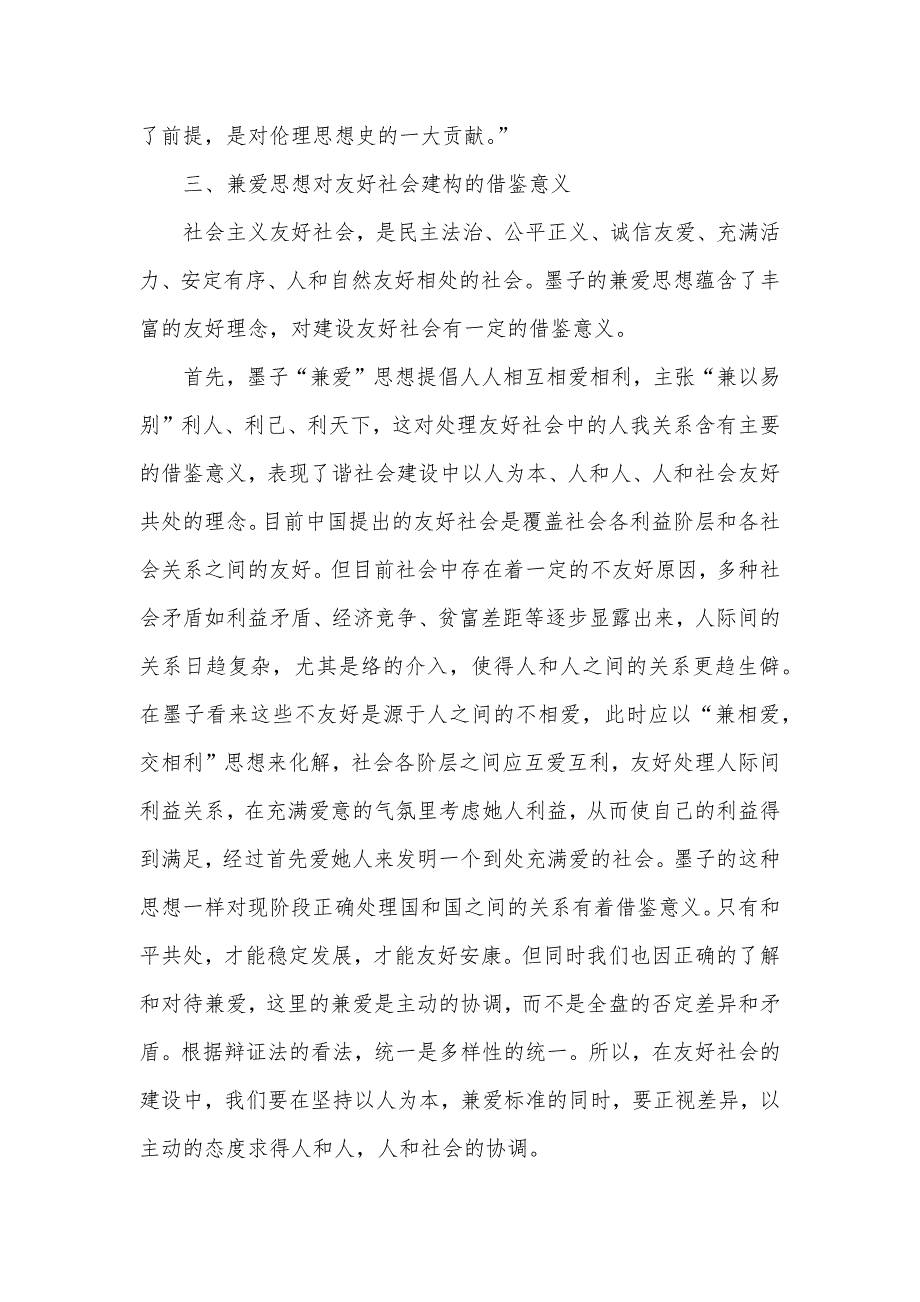 了前提，是对伦理思想史的一大贡献。”
三、兼爱思想对友好社会建构的借鉴意义
社会主义友好社会，是民主法治、公平正义、诚信友爱、充满活
力、安定有序、人和自然友好相处的社会。墨子的兼爱思想蕴含了丰
富的友好理念，对建设友好社会有一定的借鉴意义。
首先，墨子“兼爱”思想提倡人人相互相爱相利，主张“兼以易
别”利人、利己、利天下，这对处理友好社会中的人我关系含有主要
的借鉴意义，表现了谐社会建设中以人为本、人和人、人和社会友好
共处的理念。目前中国提出的友好社会是覆盖社会各利益阶层和各社
会关系之间的友好。但目前社会中存在着一定的不友好原因，多种社
会矛盾如利益矛盾、经济竞争、贫富差距等逐步显露出来，人际间的
关系日趋复杂，尤其是络的介入，使得人和人之间的关系更趋生僻。
在墨子看来这些不友好是源于人之间的不相爱，此时应以“兼相爱，
交相利”思想来化解，社会各阶层之间应互爱互利，友好处理人际间
利益关系，在充满爱意的气氛里考虑她人利益，从而使自己的利益得
到满足，经过首先爱她人来发明一个到处充满爱的社会。墨子的这种
思想一样对现阶段正确处理国和国之间的关系有着借鉴意义。只有和
平共处，才能稳定发展，才能友好安康。但同时我们也因正确的了解
和对待兼爱，这里的兼爱是主动的协调，而不是全盘的否定差异和矛
盾。根据辩证法的看法，统一是多样性的统一。所以，在友好社会的
建设中，我们要在坚持以人为本，兼爱标准的同时，要正视差异，以
主动的态度求得人和人，人和社会的协调。